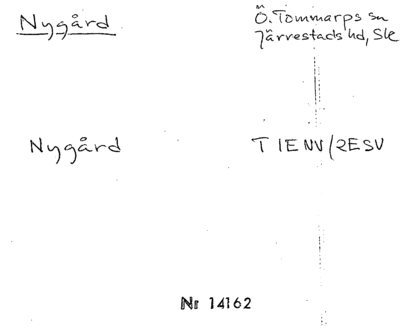 Nygård
Ö. Tommarps sn
Järrestads hd, Ske
Nygård
T 1E NV/2E SV
Nr 14162